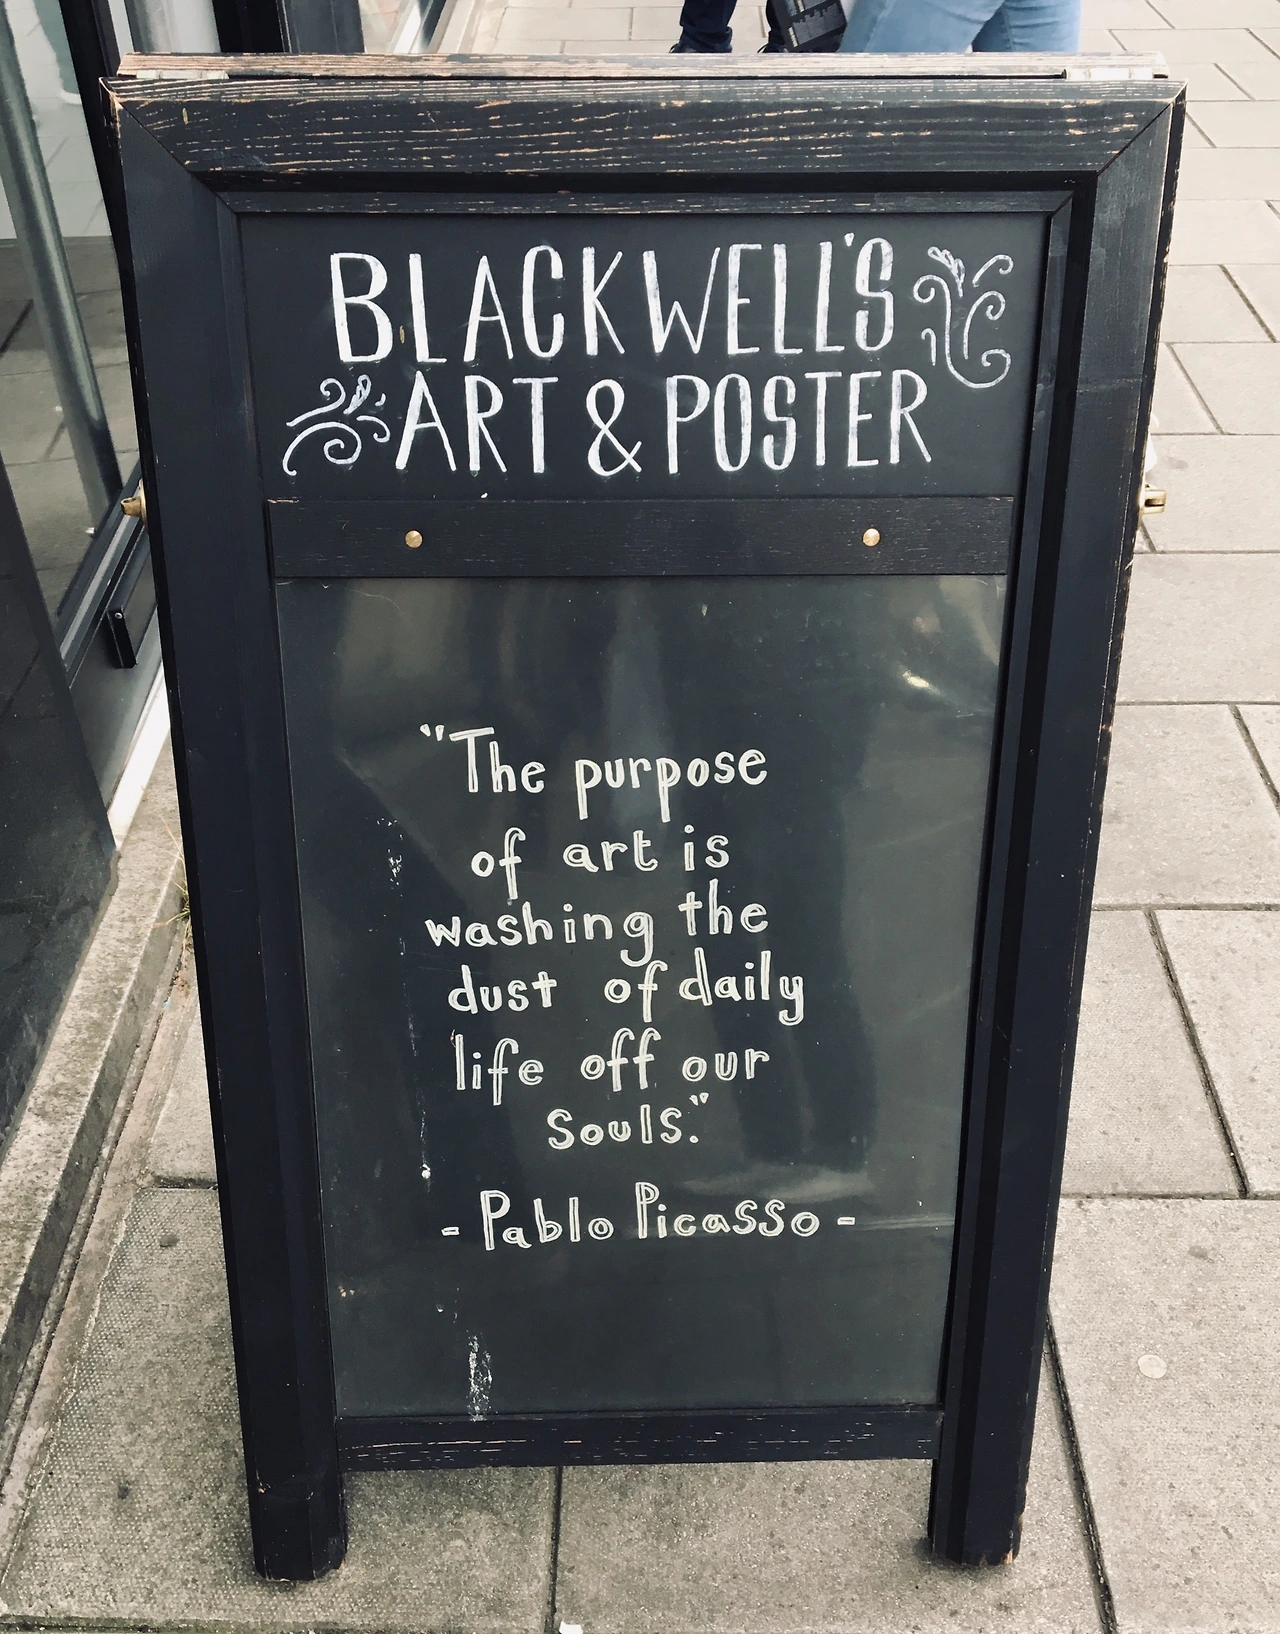 BLACKWELL'S
ART & POSTER
"The purpose
of art is
washing the
dust of daily
life off our
souls."
- Pablo Picasso -